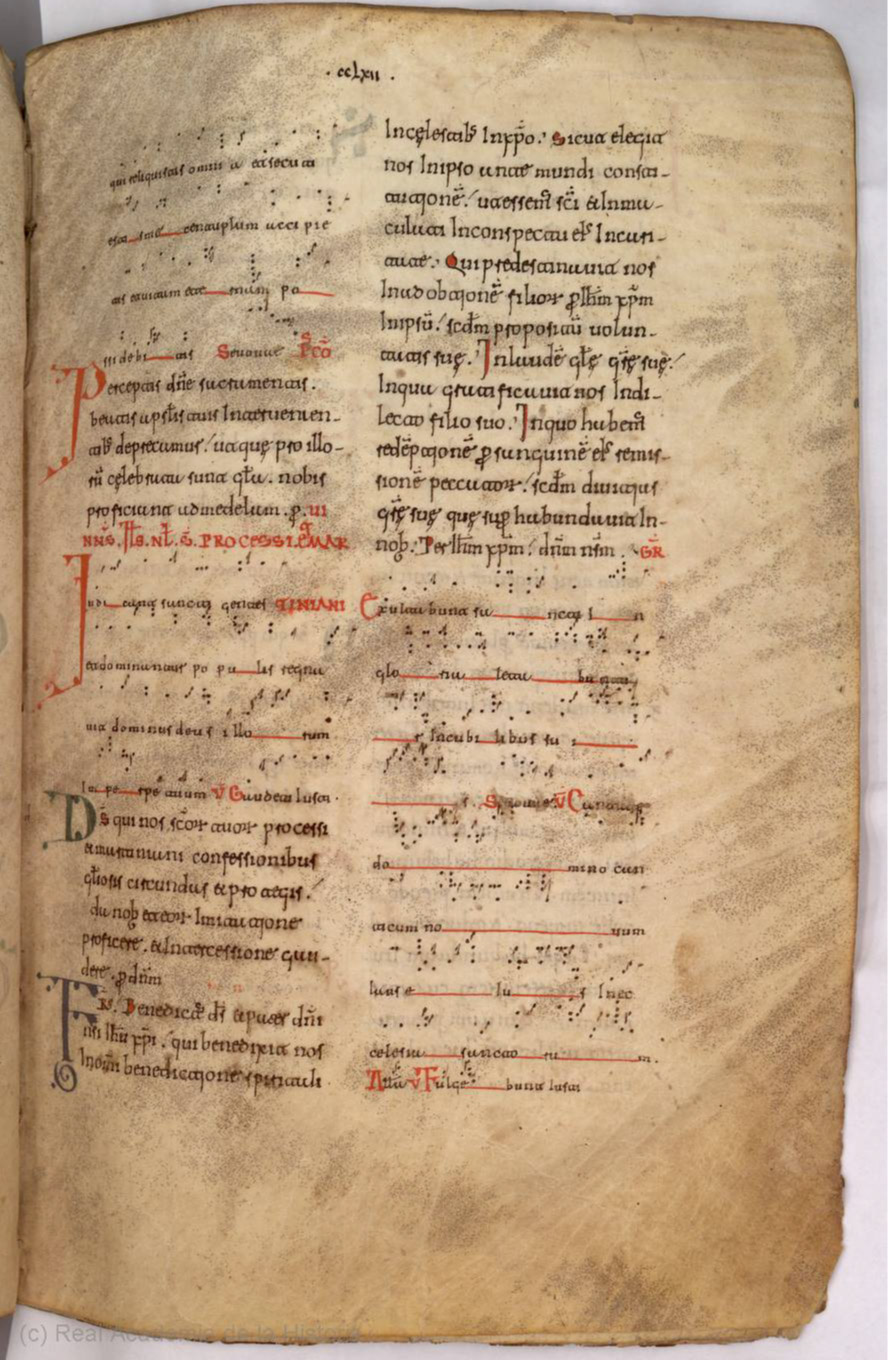 · cclxii ·
qui reliquistis omnia et secuti
estis me centuplum acci pie
tis et uitam ete rnam po
ssidebi tis S
Perceptis dñe sacramentis.
beatis apłis tuis Interuenien-
tib deprecamur. ut que pro illo-
rũ celebrata sunt gła. nobis
proficiant ad medelam. p. ui
PROCESSI. E MAR
Iudi cant sancti gentes TINIANI
et dominantur po pu lis regna
uit dominus deus illo rum
In pe rpe tuum V Gaudete Iusti.
Ds qui nos scor tuor processi
et martiniani confessionibus
gliosis circundas et protegis.
da nob et eor Imitatione
proficere. et Intercessione gau-
dere. p dñm
Frs. Benedict ds et pater dñi
nri Ihu xpi. qui benedixit nos
In omi benedictione spirituali
In celestib In xpo. Sicut elegit
nos In ipso ante mundi consti-
tutionẽ. ut essem sci et Inma-
culati In conspectu eis In cari-
tate. Qui predestinauit nos
In adobtionẽ filior p Ihm xpm
In ipsũ. scdm propositũ uolun-
tatis sue. In laudẽ głe gre sue.
In qua gratificauit nos In di-
lecto filio suo. In quo habem
redẽptionẽ p sanguinẽ eis remis-
sionẽ peccator. scdm diuitias
gre sue que sup habundauit In-
nob. Per Ihm xpm. dñm nrm. GR
Exultabunt sa ncti i n
glo ria leta bu ntur
r In cubi libus su i
s. V Cantate
do mino can
ticum no uum
laus e iu s In ec
celesia sancto ru m.
Atta V Fulge bunt Iusti
(c) Real Academia de la Historia